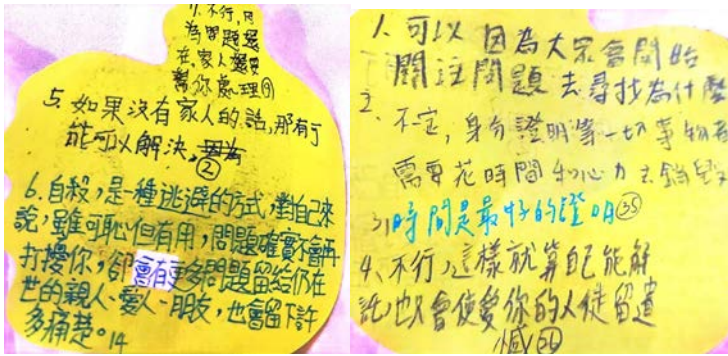 7、不行,因
為問題還
在,家人還要
幫你處理⑨
5. 如果沒有家人的話,那有可
能可以解決,因為
②
6.自殺,是一種逃避的方式,對自己來
說,雖可恥但有用,問題確實不會再
打擾你,卻會有更多問題留給仍在
世的親人、愛人、朋友,也會留下許
多痛楚。14
1、可以 因為大眾會開始
關注問題 去尋找為什麼
2、不定,身份證明等一切事物
需要花時間和心力去銷毀
3,時間是最好的證明㉟
4、不行,這樣就算自己能解
託,也只會使愛你的人徒留遺
憾㉖